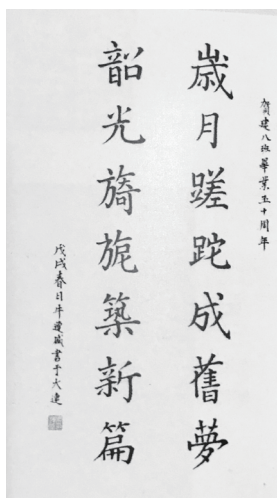 賀建八班畢業五十周年
歲月蹉跎成舊夢
韶光旖旎築新篇
戊戌春日牛運盛書于大連